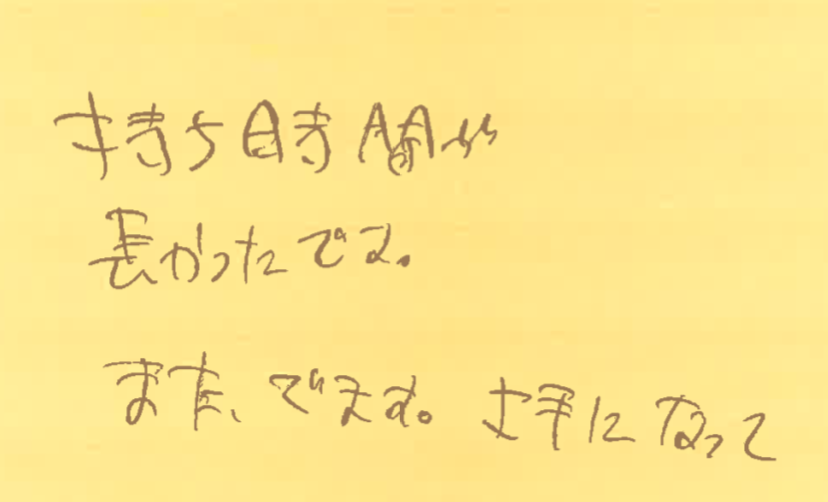 持ち時間が
長かったです。
また、できます。上手になって